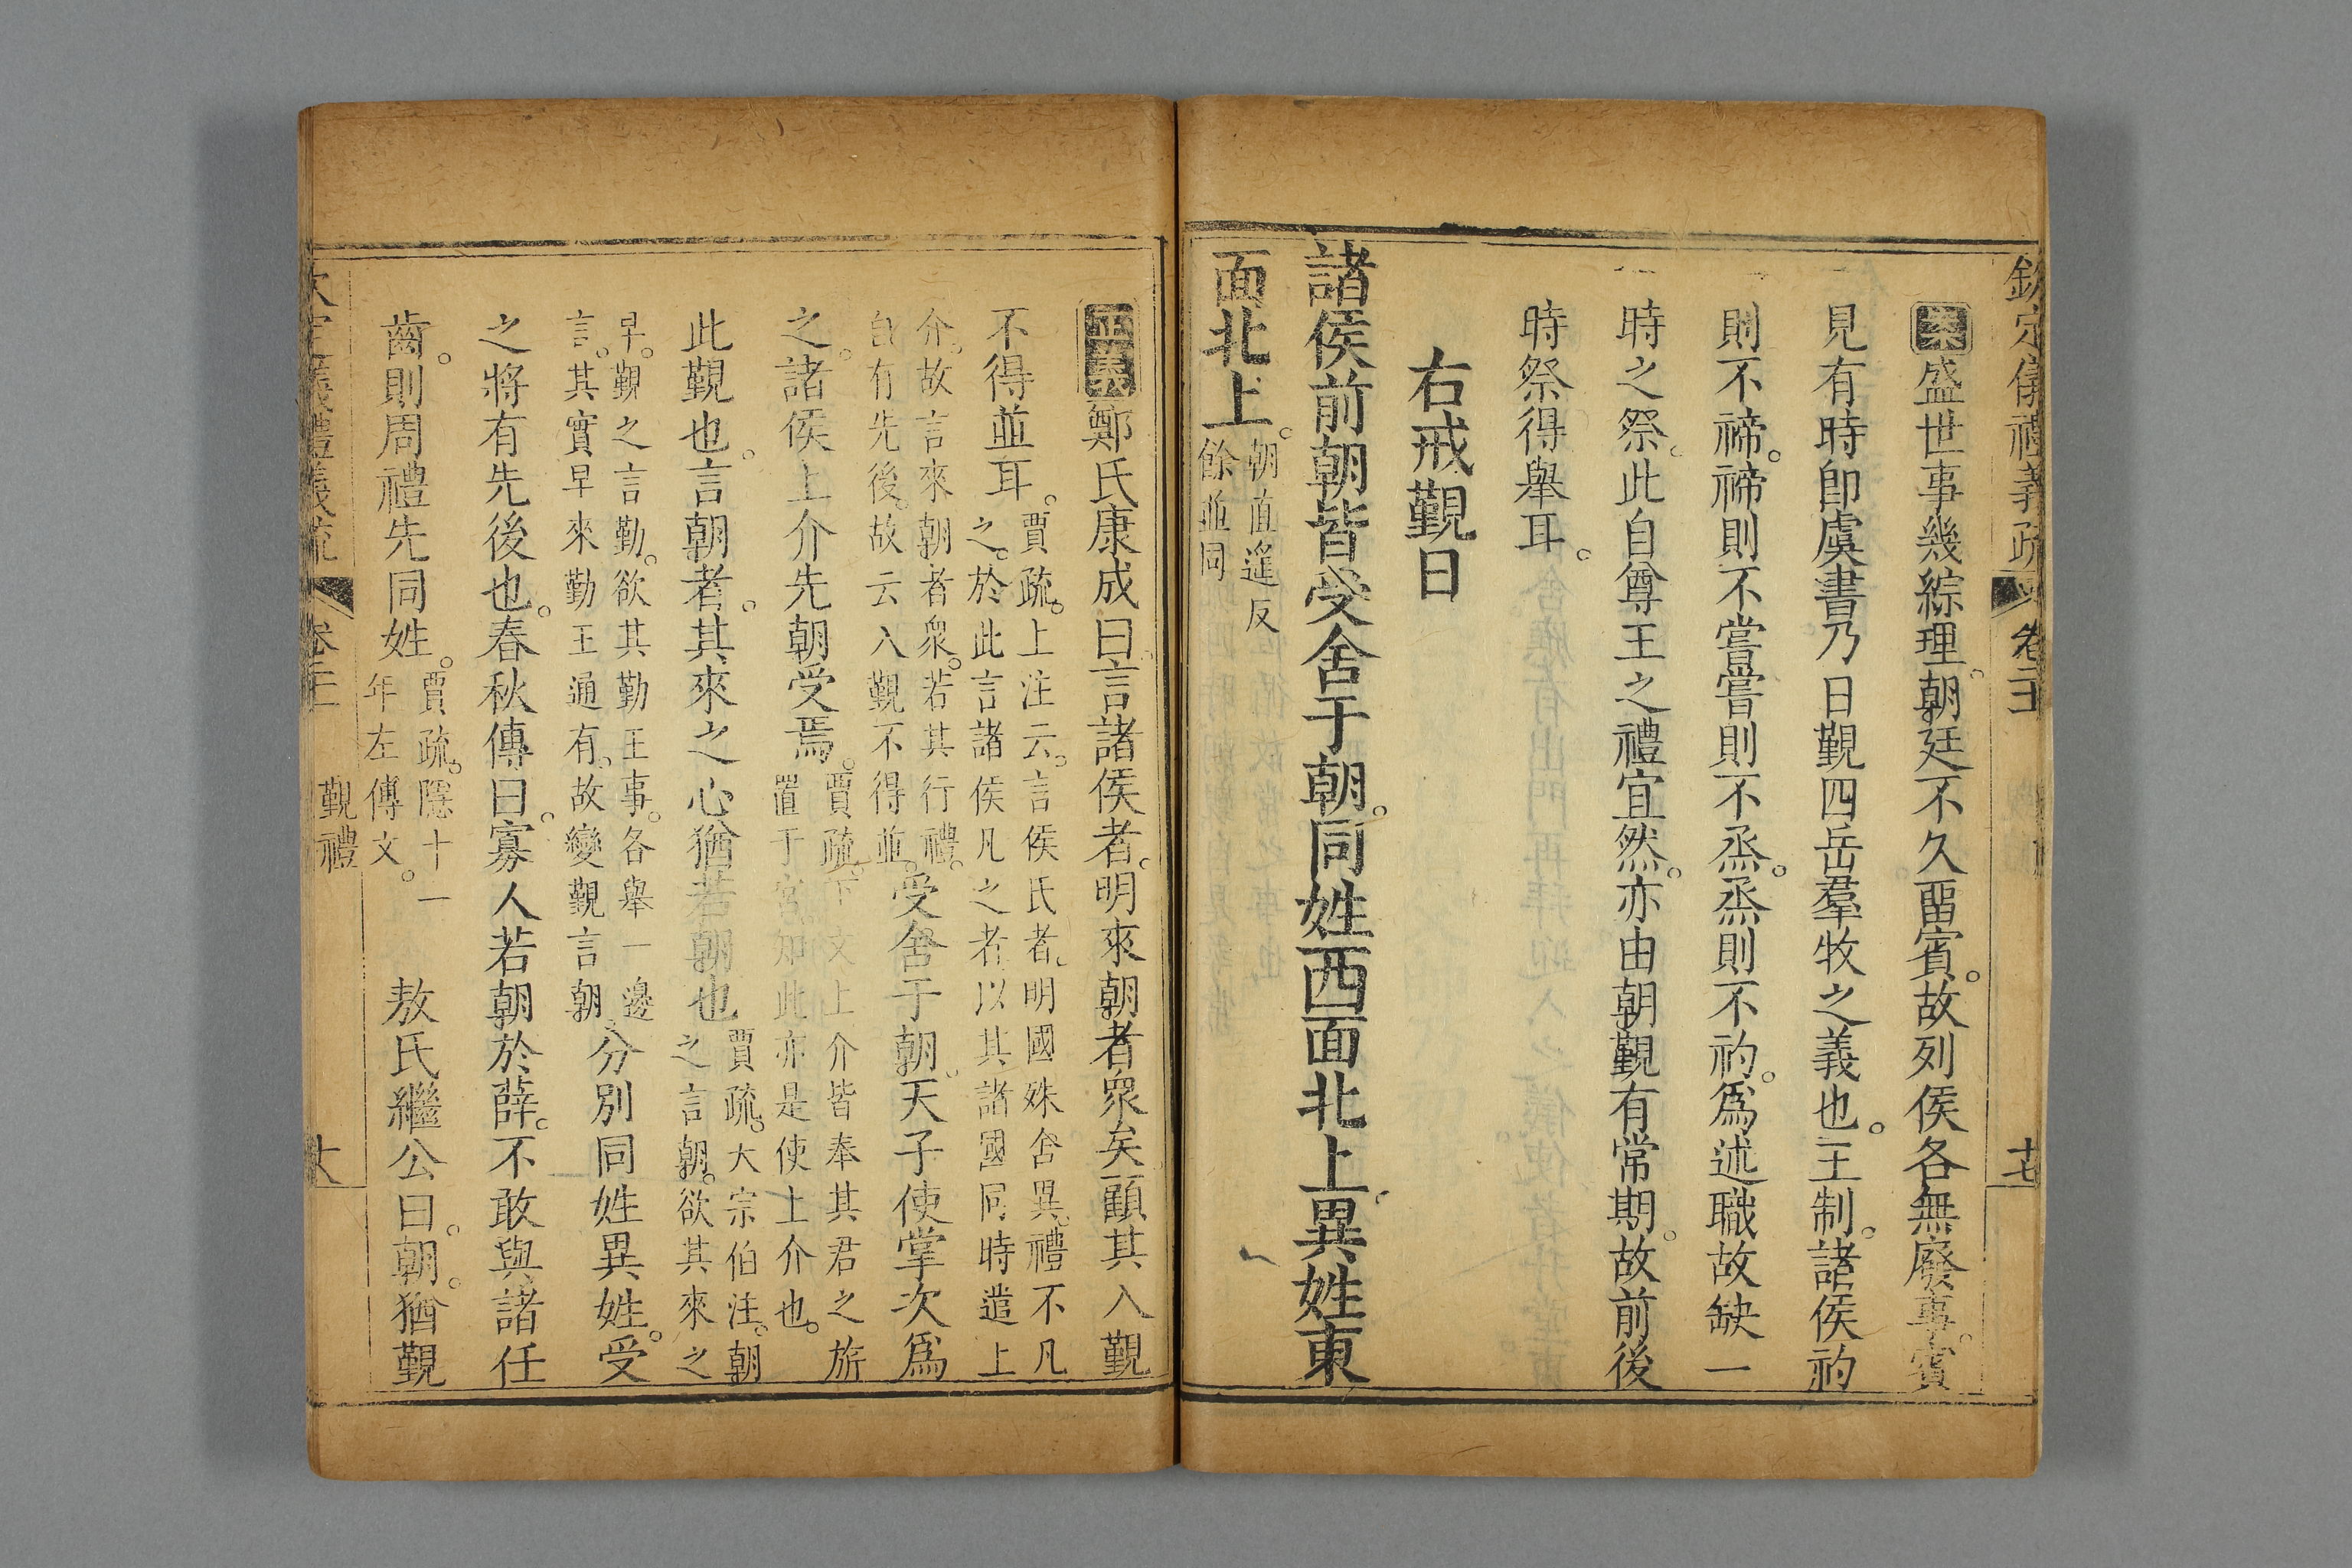 欽定儀禮義疏 卷二十 十七
案盛世事幾綜理。朝廷不久畱賓。故列侯各無廢事。賓
見有時卽虞書乃日覲四岳羣牧之義也。王制。諸侯礿
則不禘。禘則不嘗嘗則不烝。烝則不礿。爲述職故缺一
時之祭。此自尊王之禮宜然。亦由朝覲有常期。故前後
時祭得舉耳。
右戒覲日
諸侯前朝皆受舍于朝。同姓西面北上異姓東
面北上。朝直遥反
餘並同
正義鄭氏康成曰言諸侯者。明來朝者眾矣顧其入覲
不得並耳。賈疏。上注云。言侯氏者。明國殊舍異。禮不凡
之。於此言諸侯凡之者以其諸國同時遣上
介。故言來朝者衆。若其行禮。
自有先後。故云入覲不得並。受舍于朝。天子使掌次爲
之。諸侯上介先朝受焉。賈疏。下文上介皆奉其君之旂
置于宮如此亦是使上介也。
此覲也。言朝者。其來之心猶若朝也賈疏。大宗伯注。朝
之言朝。欲其來之
早。覲之言勤。欲其勤王事。各舉一邊
言。其實早來勤王通有。故變覲言朝。分別同姓異姓。受
之將有先後也。春秋傳曰。寡人若朝於薛。不敢與諸任
齒。則周禮先同姓。賈疏。隱十一
年左傳文。 敖氏繼公曰。朝。猶覲
覲禮